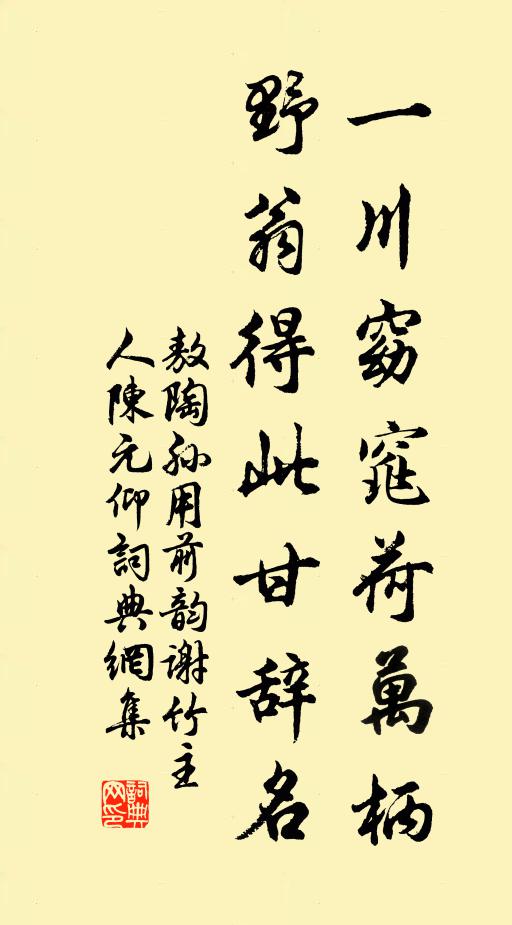 一川窈窕荷萬柄
野翁得此甘辞名
敖陶孫用前韵谢竹主
人陳元仰詞典網集
詞典
网印